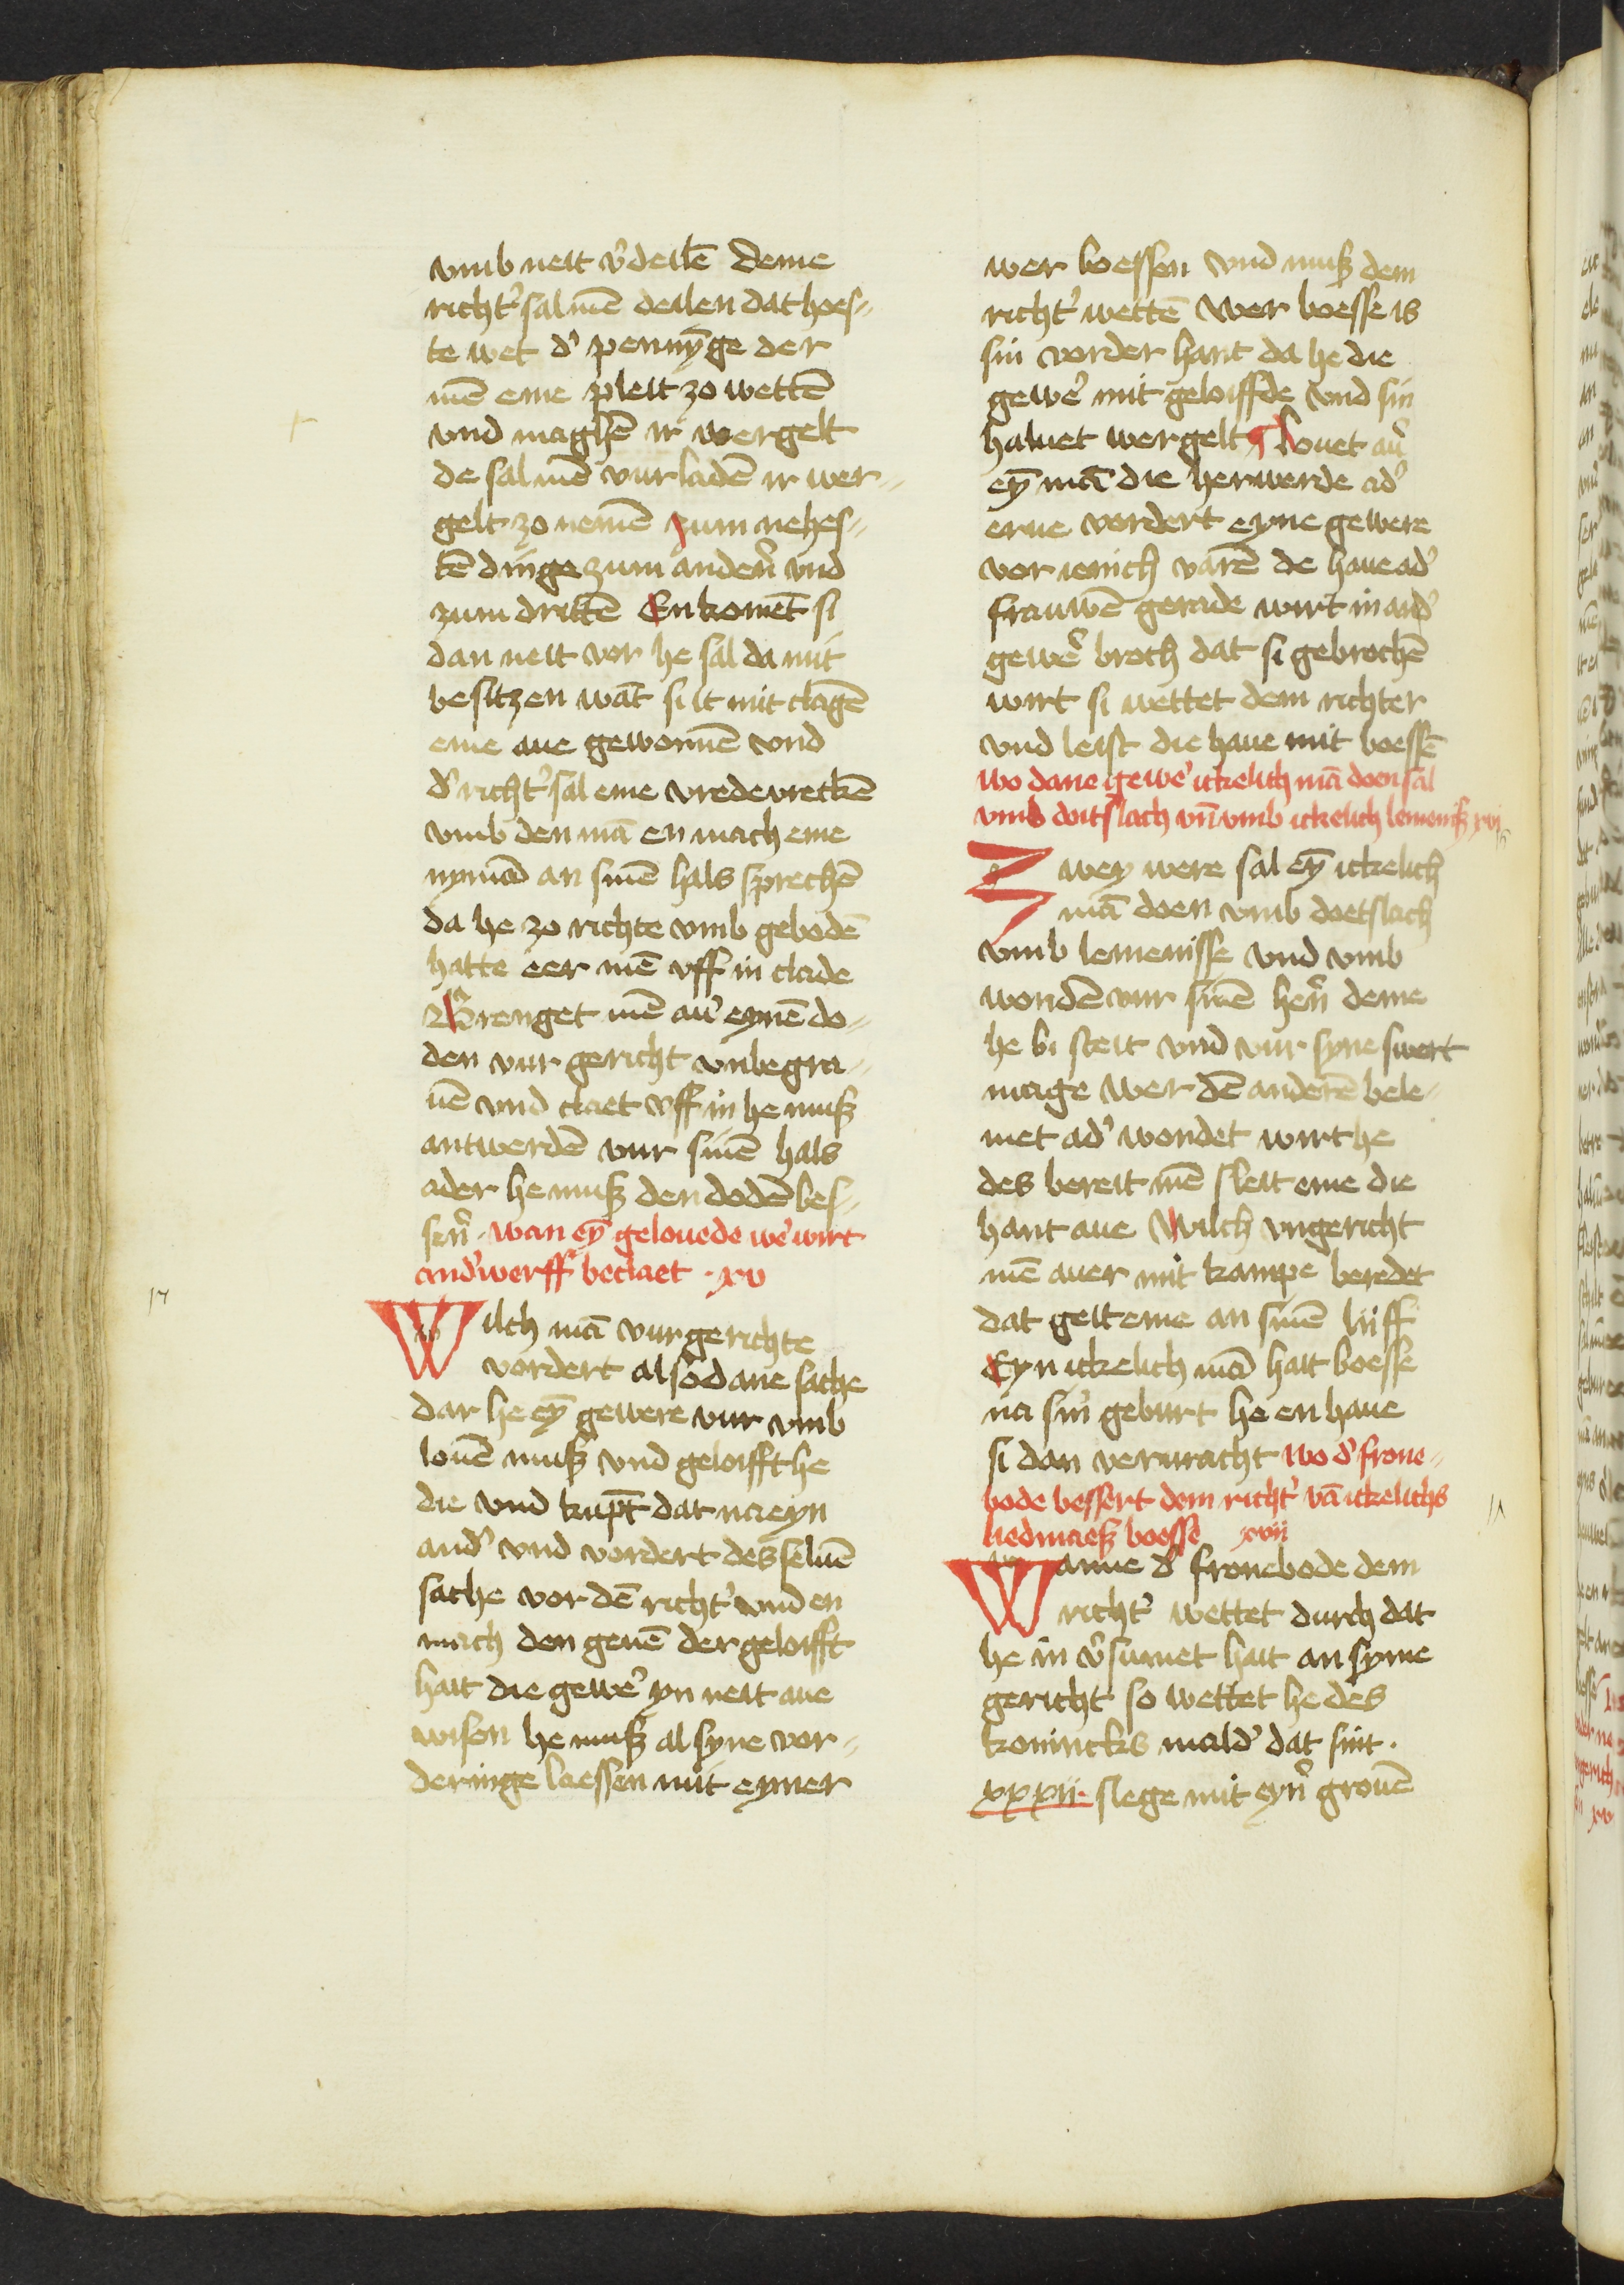 vmb neit v'deilē deme
richt' salmē deilen dat hoes=
te wet d' pennȳge der
mē eme pleit zo wettē
vnd maghē ir wergelt
de salmē vurladē ir wer=
gelt zo nemē zum nehes=
tē dinge zum anderñ vnd
zum drittē En komēt si
dan neit vor he sal da mit
besitzen wāt si it mit clagē
eme aue gewonnē vnd
d' richt' sal eme vrede vrecken
vmb den mā en mach eme
nymād an sinē hals sprechē
da he zo richte vmb gebodē
hatte eer mē vff in clade
Brenget mē au' eynē do=
den vur gericht vnbegra=
uē vnd claet vff in he muß
antwerdē vur sinē hals
ader he muß den dodē bes=
ser̄n · wan eȳ gelouede we' wirt
and'werff beclaet · xv
Wilch mā vur gerichte
vordert alsodane sache
dar he eȳ gewere vur vmb
louē muß vnd geloifft he
die vnd kūpt dat na eyn
and' vnd vordert desseluē
sache vor dē richt' vnd en
mach den genē der geloifft
hait die gewe' yn neit aue
wisen he muß al syne vor=
deringe laessen mit eymer
wer boessen vnd muß dem
richt' wettē Wer boesse is
sin vorder hant da he die
gewe' mit geloiffde vnd sin
haluet wergelt ¶ Louet au'
eȳ mā die herwerde ad'
erue vordert eyne gewere
vor ienich varē de haue ad'
frauwē gerade wirt in and'
gewe' broch dat si gebrochē
wirt si wettet dem richter
vnd leist die haue mit boessē
wo dane gewe' ickelich mā doen sal
vmb doitslach vn̄ vmb ickelich lemeniß xvj
Zwey were sal eȳ ickelich
mā doen vmb doetslach
vmb lemenisse vnd vmb
wonden vur sinē hern̄ deme
he bi steit vnd vur syne swert
mage Wer dē anderē bele=
met ad' wondet wirt he
des bereit mē sleit eme die
hant aue Wilch vngericht
mē auer mit kampe beredet
dat geit eme an sinē lijff
Eyn ickelich mā hait boesse
na sin̄ geburt he en haue
si dan verwracht wo d' frone=
bode bessert dem richt' vā ickelichs
liedmaeß boesse xvij
Wanne d' fronebode dem
richt' wettet durch dat
he in v'sumet hait an syme
gericht so wettet he des
konincks mald' dat sint ·
xxxij · slege mit eyn̄' grouē